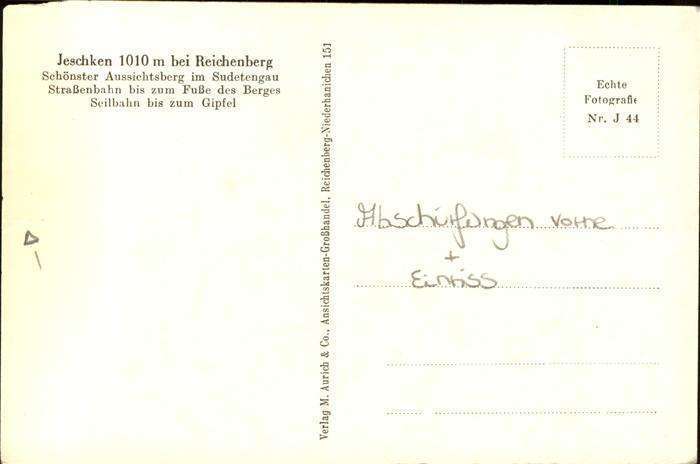 Jeschken 1010 m bei Reichenberg
Schönster Aussichtsberg im Sudetengau
Straßenbahn bis zum Fuße des Berges
Seilbahn bis zum Gipfel
Verlag M. Aurich & Co., Ansichtskarten-Großhandel, Reichenberg-Niederhanichen 151
Echte
Fotografie
Nr. J 44
Abschürfungen vorne
+
Einriss